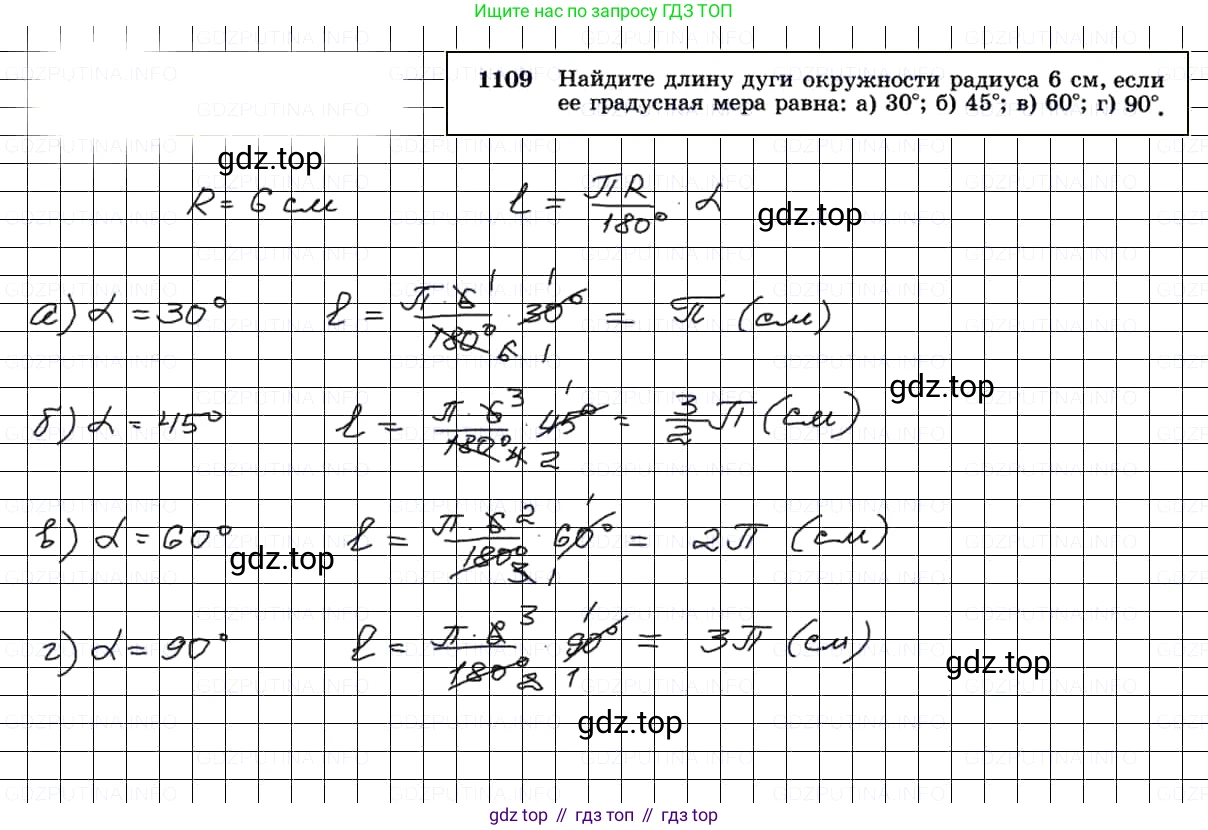 Ищите нас по запросу ГДЗ ТОП
1109 Найдите длину дуги окружности радиуса 6 см, если
ее градусная мера равна: а) 30°; б) 45°; в) 60°; г) 90°.
gdz.top
R = 6 см l = ПR/180° · α
gdz.top
а) α = 30° l = П·6/180° · 30° = П (см)
gdz.top
б) α = 45° l = П·6/180° · 45° = 3/2 П (см)
в) α = 60° l = П·6/180° · 60° = 2П (см)
gdz.top
г) α = 90° l = П·6/180° · 90° = 3П (см)
gdz.top
gdz.top
gdz top // гдз топ // гдз top